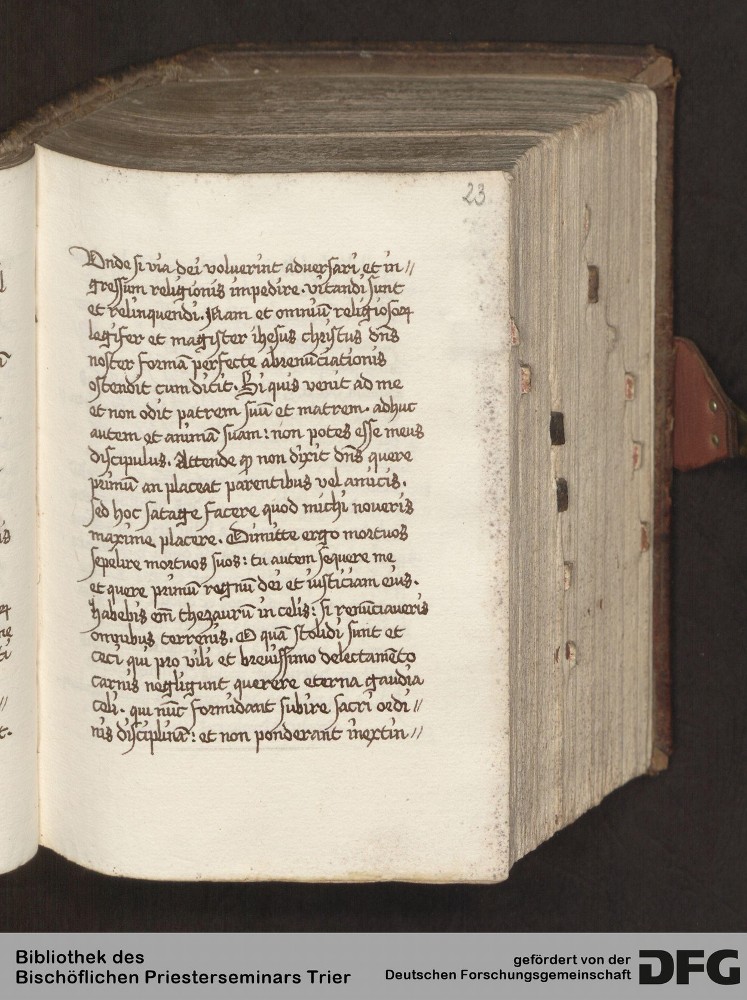 23
Vnde si via dei voluerint adversari et in//
gressum religionis impedire. vitandi sunt
et relinquendi. Nam et omniū religiosoꝝ
legifer et magister ihesus christus dn̄s
noster formā perfecte abrenūciationis
ostendit cum dicit. Si quis venit ad me
et non odit patrem suū et matrem. adhuc
autem et animā suam: non potes esse meus
discipulus. Attende ꝙ non dixit dn̄s quere
primū an placeat parentibus vel amicis.
sed hoc satage facere quod michi noveris
maxime placere. Dimitte ergo mortuos
sepelire mortuos suos: tu autem sequere me
et quere primū regnū dei et iusticiam eius.
habebis em̄ thezaurū in celis: si renūciaveris
omnibus terrenis. O quā stolidi sunt et
ceci qui pro vili et brevissimo delectamēto
carnis negligunt querere eterna gaudia
celi. qui nūc formidant subire sacri ordi//
nis disciplinā: et non ponderant inextin//
Bibliothek des
Bischöflichen Priesterseminars Trier
gefördert von der
Deutschen Forschungsgemeinschaft
DFG